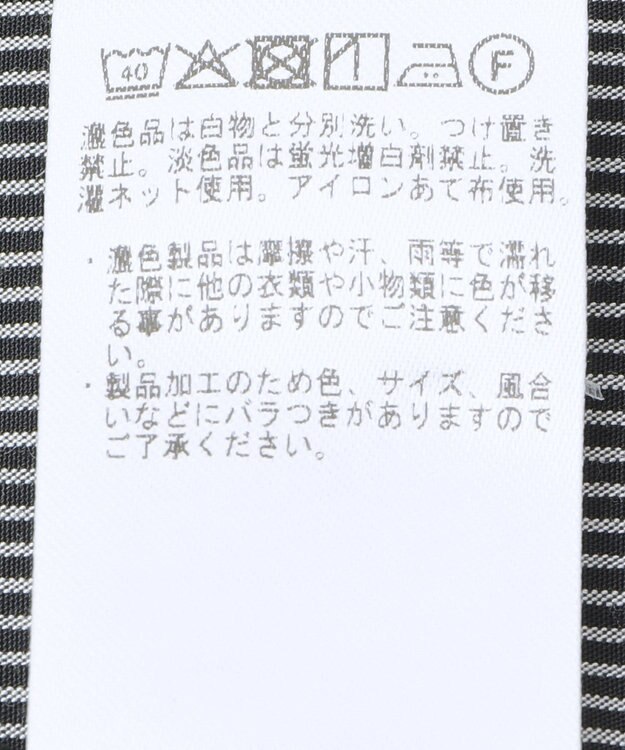 40 F
濃色品は白物と分別洗い。つけ置き
禁止。淡色品は蛍光増白剤禁止。洗
濯ネット使用。アイロンあて布使用。
・濃色製品は摩擦や汗、雨等で濡れ
た際に他の衣類や小物類に色が移
る事がありますのでご注意くださ
い。
・製品加工のため色、サイズ、風合
いなどにバラつきがありますので
ご了承ください。